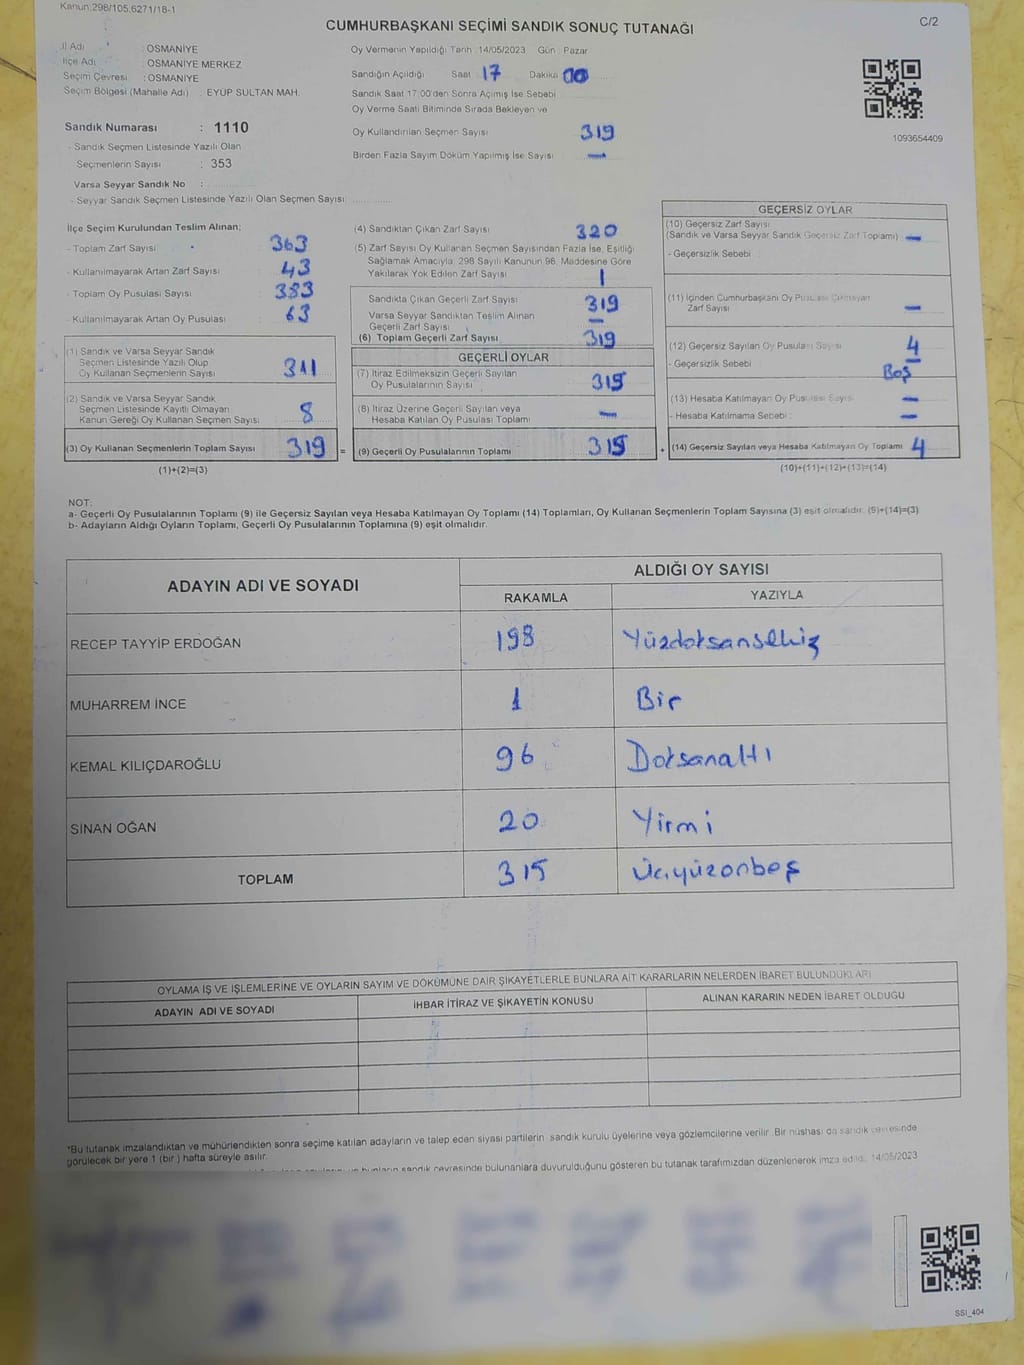 Kanun:298/105,6271/18-1
C/2
CUMHURBAŞKANI SEÇİMİ SANDIK SONUÇ TUTANAĞI
İl Adı : OSMANİYE
İlçe Adı : OSMANİYE MERKEZ
Seçim Çevresi : OSMANİYE
Seçim Bölgesi (Mahalle Adı) : EYUP SULTAN MAH.
Sandık Numarası : 1110
- Sandık Seçmen Listesinde Yazılı Olan
Seçmenlerin Sayısı : 353
Varsa Seyyar Sandık No :
- Seyyar Sandık Seçmen Listesinde Yazılı Olan Seçmen Sayısı:
Oy Vermenin Yapıldığı Tarih :14/05/2023 Gün : Pazar
Sandığın Açıldığı Saat 17 Dakika 00
Sandık Saat 17:00'den Sonra Açımış İse Sebebi
Oy Verme Saati Bitiminde Sırada Bekleyen ve
Oy Kullandırılan Seçmen Sayısı 319
Birden Fazla Sayım Döküm Yapılmış İse Sayısı —
1093654409
İlçe Seçim Kurulundan Teslim Alınan;
- Toplam Zarf Sayısı : 363
- Kullanılmayarak Artan Zarf Sayısı : 43
- Toplam Oy Pusulası Sayısı : 383
- Kullanılmayarak Artan Oy Pusulası : 63
(1) Sandık ve Varsa Seyyar Sandık
Seçmen Listesinde Yazılı Olup
Oy Kullanan Seçmenlerin Sayısı : 311
(2) Sandık ve Varsa Seyyar Sandık
Seçmen Listesinde Kayıtlı Olmayan
Kanun Gereği Oy Kullanan Seçmen Sayısı : 8
(3) Oy Kullanan Seçmenlerin Toplam Sayısı : 319 =
(1)+(2)=(3)
(4) Sandıktan Çıkan Zarf Sayısı : 320
(5) Zarf Sayısı Oy Kullanan Seçmen Sayısından Fazla İse, Eşitliği
Sağlamak Amacıyla, 298 Sayılı Kanunun 98. Maddesine Göre
Yakılarak Yok Edilen Zarf Sayısı : 1
Sandıkta Çıkan Geçerli Zarf Sayısı : 319
Varsa Seyyar Sandıktan Teslim Alınan
Geçerli Zarf Sayısı : —
(6) Toplam Geçerli Zarf Sayısı : 319
GEÇERLİ OYLAR
(7) İtiraz Edilmeksizin Geçerli Sayılan
Oy Pusulalarının Sayısı : 315
(8) İtiraz Üzerine Geçerli Sayılan veya
Hesaba Katılan Oy Pusulası Toplamı : —
(9) Geçerli Oy Pusulalarının Toplamı : 315 +
GEÇERSİZ OYLAR
(10) Geçersiz Zarf Sayısı
(Sandık ve Varsa Seyyar Sandık Geçersiz Zarf Toplamı) : —
- Geçersizlik Sebebi :
(11) İçinden Cumhurbaşkanı Oy Pusulası Çıkmayan
Zarf Sayısı : —
(12) Geçersiz Sayılan Oy Pusulası Sayısı : 4
- Geçersizlik Sebebi : Boş
(13) Hesaba Katılmayan Oy Pusulası Sayısı : —
- Hesaba Katılmama Sebebi : —
(14) Geçersiz Sayılan veya Hesaba Katılmayan Oy Toplamı : 4
(10)+(11)+(12)+(13)=(14)
NOT:
a- Geçerli Oy Pusulalarının Toplamı (9) ile Geçersiz Sayılan veya Hesaba Katılmayan Oy Toplamı (14) Toplamları, Oy Kullanan Seçmenlerin Toplam Sayısına (3) eşit olmalıdır. (9)+(14)=(3)
b- Adayların Aldığı Oyların Toplamı, Geçerli Oy Pusulalarının Toplamına (9) eşit olmalıdır.
ADAYIN ADI VE SOYADI
ALDIĞI OY SAYISI
RAKAMLA YAZIYLA
RECEP TAYYİP ERDOĞAN 198 Yüzdoksansekiz
MUHARREM İNCE 1 Bir
KEMAL KILIÇDAROĞLU 96 Doksanaltı
SİNAN OĞAN 20 Yirmi
TOPLAM 315 Üçyüzonbeş
OYLAMA İŞ VE İŞLEMLERİNE VE OYLARIN SAYIM VE DÖKÜMÜNE DAİR ŞİKAYETLERLE BUNLARA AİT KARARLARIN NELERDEN İBARET BULUNDUKLARI
ADAYIN ADI VE SOYADI İHBAR İTİRAZ VE ŞİKAYETİN KONUSU ALINAN KARARIN NEDEN İBARET OLDUĞU
*Bu tutanak imzalandıktan ve mühürlendikten sonra seçime katılan adayların ve talep eden siyasi partilerin sandık kurulu üyelerine veya gözlemcilerine verilir. Bir nüshası da sandık çevresinde
görülecek bir yere 1 (bir ) hafta süreyle asılır.
bunların sandık çevresinde bulunanlara duyurulduğunu gösteren bu tutanak tarafımızdan düzenlenerek imza edildi. 14/05/2023
SSI_404